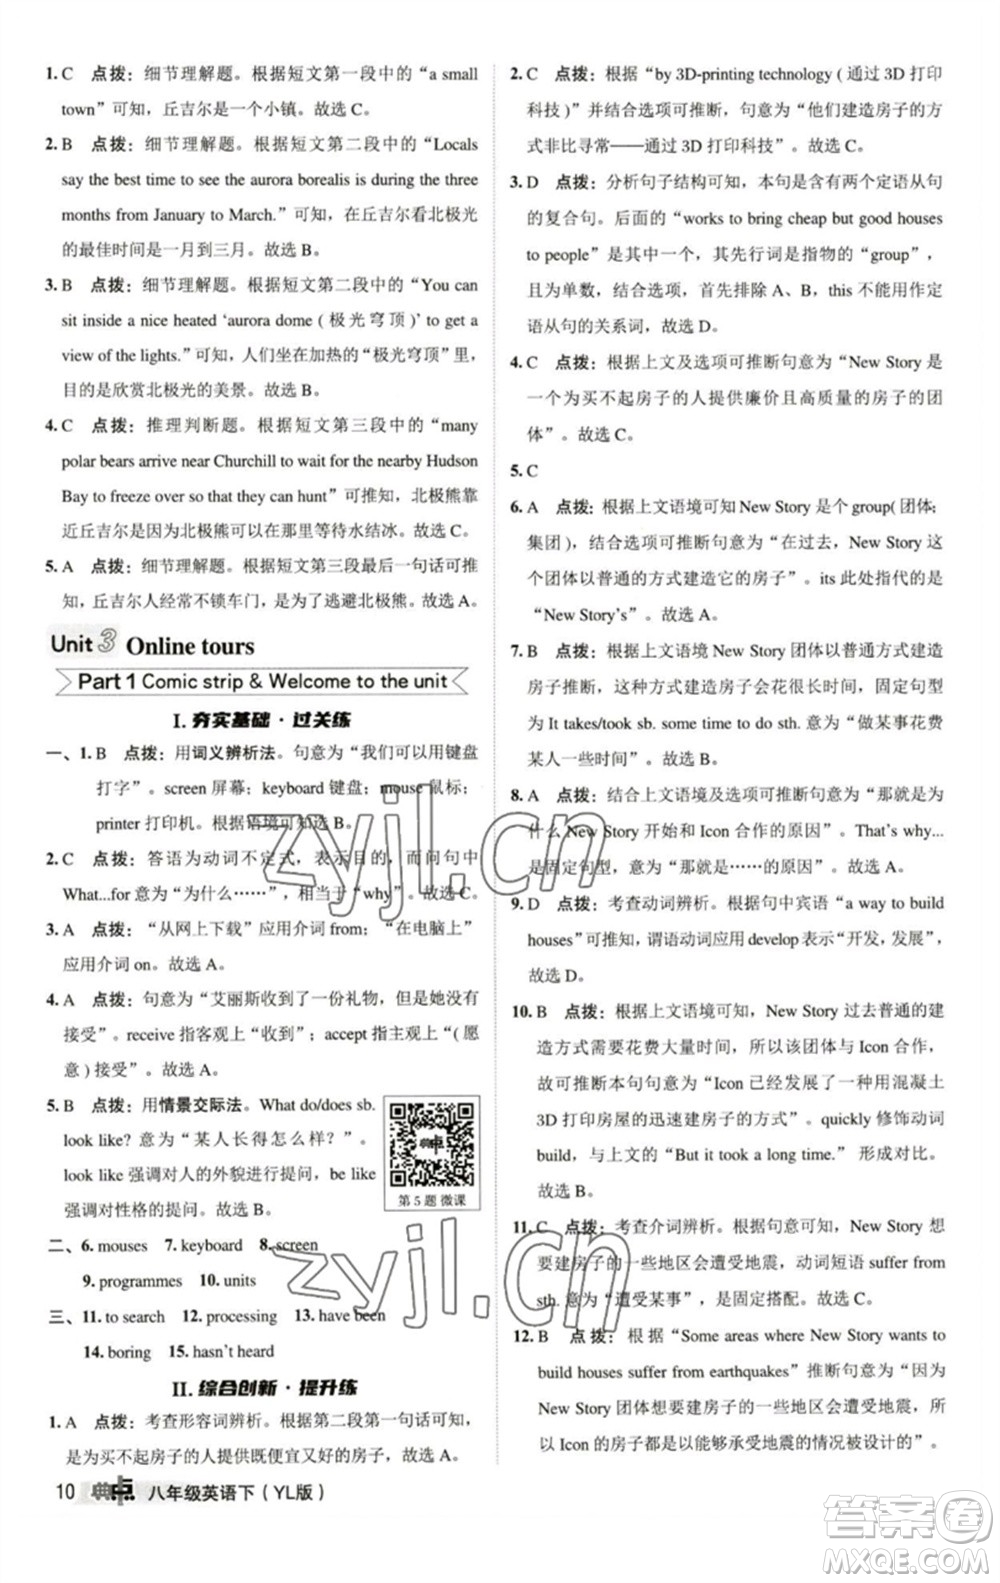 1. C 点拨：细节理解题。根据短文第一段中的“a small
town”可知，丘吉尔是一个小镇。故选 C。
2. B 点拨：细节理解题。根据短文第二段中的“Locals
say the best time to see the aurora borealis is during the three
months from January to March.”可知，在丘吉尔看北极光
的最佳时间是一月到三月。故选 B。
3. B 点拨：细节理解题。根据短文第二段中的“You can
sit inside a nice heated ‘aurora dome（极光穹顶）’to get a
view of the lights.”可知，人们坐在加热的“极光穹顶”里，
目的是欣赏北极光的美景。故选 B。
4. C 点拨：推理判断题。根据短文第三段中的“many
polar bears arrive near Churchill to wait for the nearby Hudson
Bay to freeze over so that they can hunt”可推知，北极熊靠
近丘吉尔是因为北极熊可以在那里等待水结冰。故选 C。
5. A 点拨：细节理解题。根据短文第三段最后一句话可推
知，丘吉尔人经常不锁车门，是为了逃避北极熊。故选 A。
Unit 3 Online tours
Part 1 Comic strip & Welcome to the unit
I. 夯实基础·过关练
一、1. B 点拨：用词义辨析法。句意为“我们可以用键盘
打字”。screen 屏幕；keyboard 键盘；mouse 鼠标；
printer 打印机。根据语境可知选 B。
2. C 点拨：答语为动词不定式，表示目的，而问句中
What...for 意为“为什么……”，相当于“why”。故选 C。
3. A 点拨：“从网上下载”应用介词 from；“在电脑上”
应用介词 on。故选 A。
4. A 点拨：句意为“艾丽斯收到了一份礼物，但是她没有
接受”。receive 指客观上“收到”；accept 指主观上“（愿
意）接受”。故选 A。
5. B 点拨：用情景交际法。What do/does sb.
look like? 意为“某人长得怎么样？”。
look like 强调对人的外貌进行提问，be like
强调对性格的提问。故选 B。
第 5 题 微课
二、6. mouses 7. keyboard 8. screen
9. programmes 10. units
三、11. to search 12. processing 13. have been
14. boring 15. hasn't heard
II. 综合创新·提升练
1. A 点拨：考查形容词辨析。根据第二段第一句话可知，
是为买不起房子的人提供既便宜又好的房子，故选 A。
10 典中点 八年级英语下（YL版）
2. C 点拨：根据“by 3D-printing technology（通过 3D 打印
科技）”并结合选项可推断，句意为“他们建造房子的方
式非比寻常——通过 3D 打印科技”。故选 C。
3. D 点拨：分析句子结构可知，本句是含有两个定语从句
的复合句。后面的“works to bring cheap but good houses
to people”是其中一个，其先行词是指物的“group”，
且为单数，结合选项，首先排除 A、B，this 不能用作定
语从句的关系词，故选 D。
4. C 点拨：根据上文及选项可推断句意为“New Story 是
一个为买不起房子的人提供廉价且高质量的房子的团
体”。故选 C。
5. C
6. A 点拨：根据上文语境可知 New Story 是个 group（团体；
集团），结合选项可推断句意为“在过去，New Story
这个团体以普通的方式建造它的房子”。its 此处指代的是
“New Story's”。故选 A。
7. B 点拨：根据上文语境 New Story 团体以普通方式建造
房子推断，这种方式建造房子会花很长时间，固定句型
为 It takes/took sb. some time to do sth. 意为“做某事花费
某人一些时间”。故选 B。
8. A 点拨：结合上文语境及选项可推断句意为“那就是为
什么 New Story 开始和 Icon 合作的原因”。That's why...
是固定句型，意为“那就是……的原因”。故选 A。
9. D 点拨：考查动词辨析。根据句中宾语“a way to build
houses”可推知，谓语动词应用 develop 表示“开发，发展”，
故选 D。
10. B 点拨：根据上文语境可知，New Story 过去普通的建
造方式需要花费大量时间，所以该团体与 Icon 合作，
故可推断本句句意为“Icon 已经发展了一种用混凝土
3D 打印房屋的迅速建房子的方式”。quickly 修饰动词
build，与上文的“But it took a long time.”形成对比。
故选 B。
11. C 点拨：考查介词辨析。根据句意可知，New Story 想
要建房子的一些地区会遭受地震，动词短语 suffer from
sth. 意为“遭受某事”，是固定搭配。故选 C。
12. B 点拨：根据“Some areas where New Story wants to
build houses suffer from earthquakes”推断句意为“因为
New Story 团体想要建房子的一些地区会遭受地震，所
以 Icon 的房子都是以能够承受地震的情况被设计的”。
zyjl.cn
zyjl.cn
答案圈
MXQE.COM